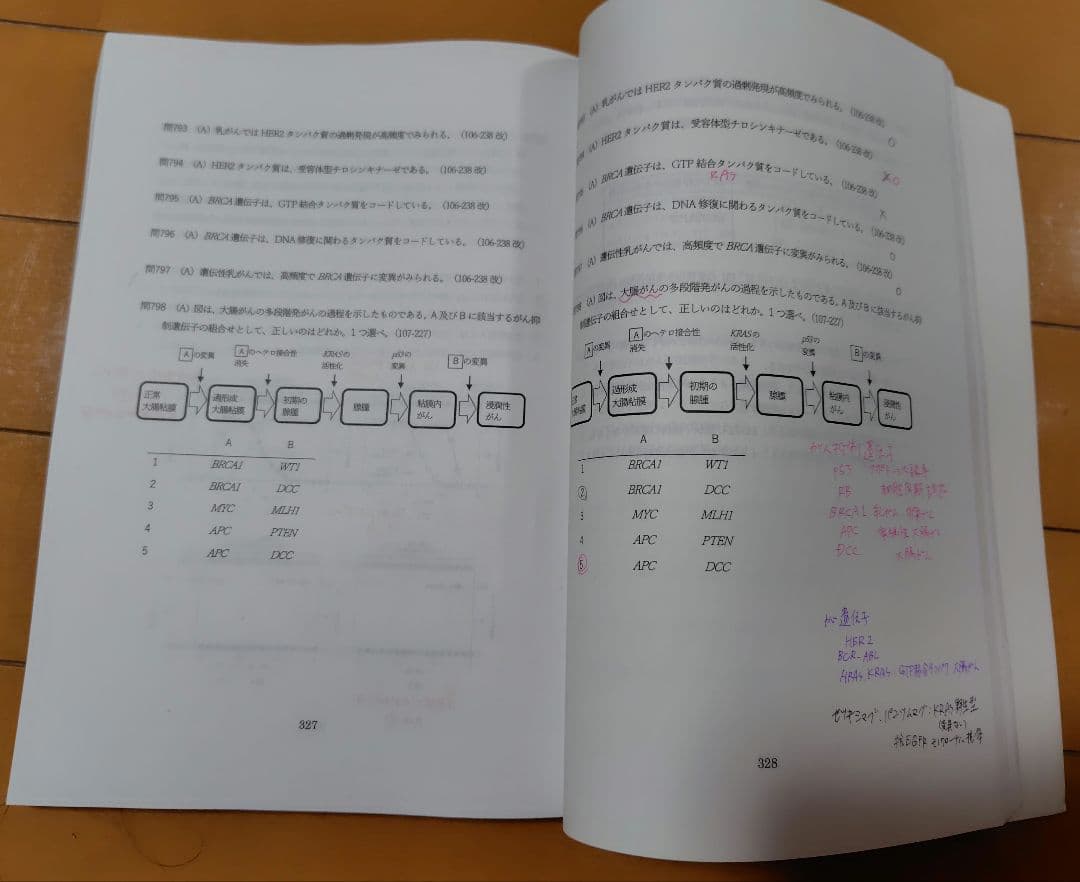 問793 (A) 乳がんではHER2タンパク質の過剰発現が高頻度でみられる。(106-238改)
問794 (A) HER2タンパク質は、受容体型チロシンキナーゼである。(106-238改)
問795 (A) BRCA遺伝子は、GTP結合タンパク質をコードしている。(106-238改)
問796 (A) BRCA遺伝子は、DNA修復に関わるタンパク質をコードしている。(106-238改)
問797 (A) 遺伝性乳がんでは、高頻度でBRCA遺伝子に変異がみられる。(106-238改)
問798 (A) 図は、大腸がんの多段階発がんの過程を示したものである。A及びBに該当するがん抑
制遺伝子の組合せとして、正しいのはどれか。1つ選べ。(107-227)
Aの変異
Aのヘテロ接合性
消失
KRASの
活性化
p53の
変異
Bの変異
正常
大腸粘膜
過形成
大腸粘膜
初期の
腺腫
腺腫
粘膜内
がん
浸潤性
がん
A B
1 BRCA1 WT1
2 BRCA1 DCC
3 MYC MLH1
4 APC PTEN
5 APC DCC
327
(A) 乳がんではHER2タンパク質の過剰発現が高頻度でみられる。(106-238改)
(A) HER2タンパク質は、受容体型チロシンキナーゼである。(106-238改)
(A) BRCA遺伝子は、GTP結合タンパク質をコードしている。(106-238改)
RAS
(A) BRCA遺伝子は、DNA修復に関わるタンパク質をコードしている。(106-238改)
(A) 遺伝性乳がんでは、高頻度でBRCA遺伝子に変異がみられる。(106-238改)
(A) 図は、大腸がんの多段階発がんの過程を示したものである。A及びBに該当するがん抑
制遺伝子の組合せとして、正しいのはどれか。1つ選べ。(107-227)
Aの変異
Aのヘテロ接合性
消失
KRASの
活性化
p53の
変異
Bの変異
過形成
大腸粘膜
初期の
腺腫
腺腫
粘膜内
がん
浸潤性
がん
A B
1 BRCA1 WT1
② BRCA1 DCC
3 MYC MLH1
4 APC PTEN
⑤ APC DCC
がん抑制遺伝子
p53
RB
BRCA1 乳がん
APC
DCC 大腸がん
がん遺伝子
HER2
BCR-ABL
HRAS, KRAS GTP結合タンパク 大腸がん
KRAS野生型
(変異ない)
抗EGFR
328